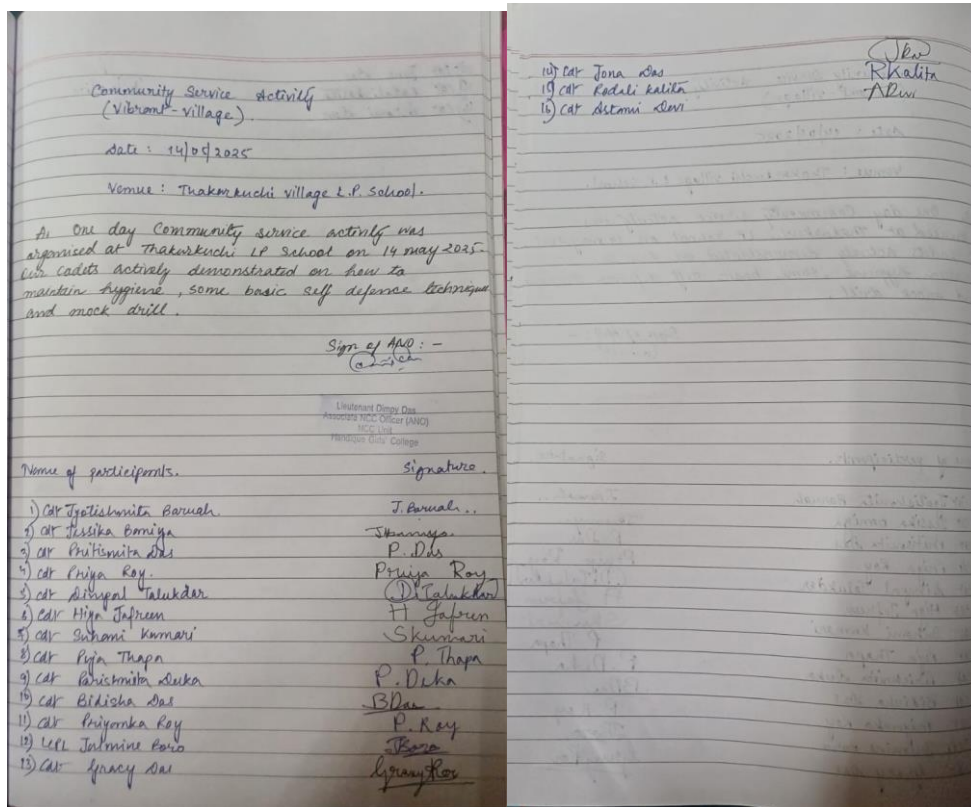 Community Service Activity
(Vibrant-village).
Date : 14/05/2025
Venue : Thakurkuchi village L.P. School.
A, One day Community service activity was
organised at Thakurkuchi LP School on 14 may 2025.
Our cadets actively demonstrated on how to
maintain hygiene, some basic self defence techniques
and mock drill.
Sign of ANO : -
Lieutenant Dimpy Das
Associate NCC Officer (ANO)
NCC Unit
Handique Girls' College
Name of participants. Signature.
1) Cdt Jyotishmita Baruah. J. Baruah..
2) Cdt Jessika Bamiya
3) Cdt Pritismita Das P. Das
4) Cdt Priya Roy. Priya Roy
5) Cdt Dimpal Talukdar D. Talukdar
6) Cdt Hiya Jafreen H Jafren
7) Cdt Suhani Kumari S Kumari
8) Cdt Puja Thapa P. Thapa
9) Cdt Parishmita Deka P. Deka
10) Cdt Bidisha Das B Das
11) Cdt Priyanka Roy P. Roy
12) LCPL Jasmine Boro JBoro
13) Cdt Gracy Das
14) Cdt Jona Das
15) Cdt Rodali Kalita RKalita
16) Cdt Astami Devi ADevi